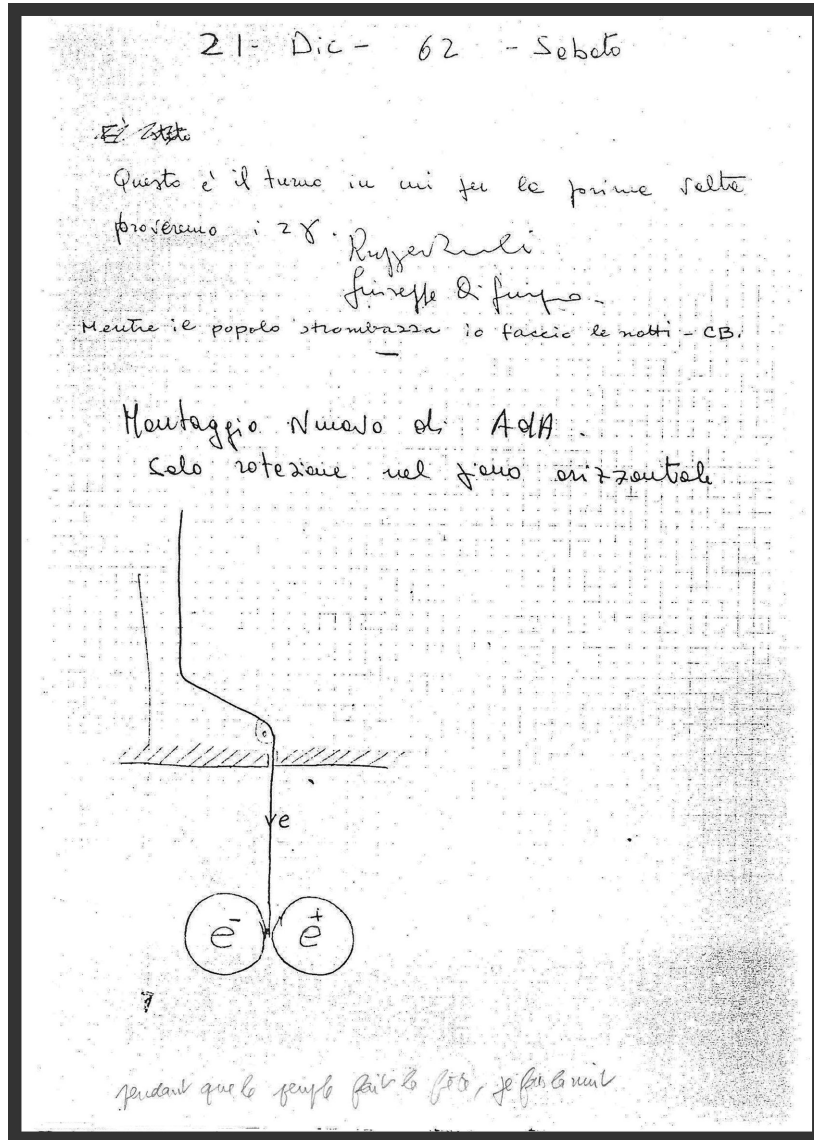 21- Dic - 62 - Sabato
È stato
Questo è il turno in cui per la prima volta
proveremo i 2γ.
Giuseppe Di Giugno
Mentre il popolo strombazza io faccio le notti - CB.
Montaggio Nuovo di AdA.
Solo rotazione nel piano orizzontale
e
e⁻ e⁺
pendant que le peuple fait la fête, je fais la nuit